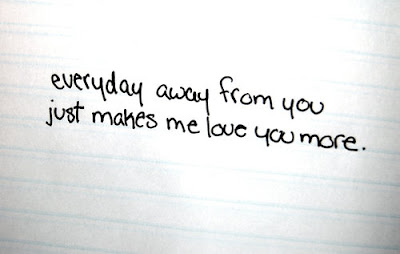 everyday away from you
just makes me love you more.